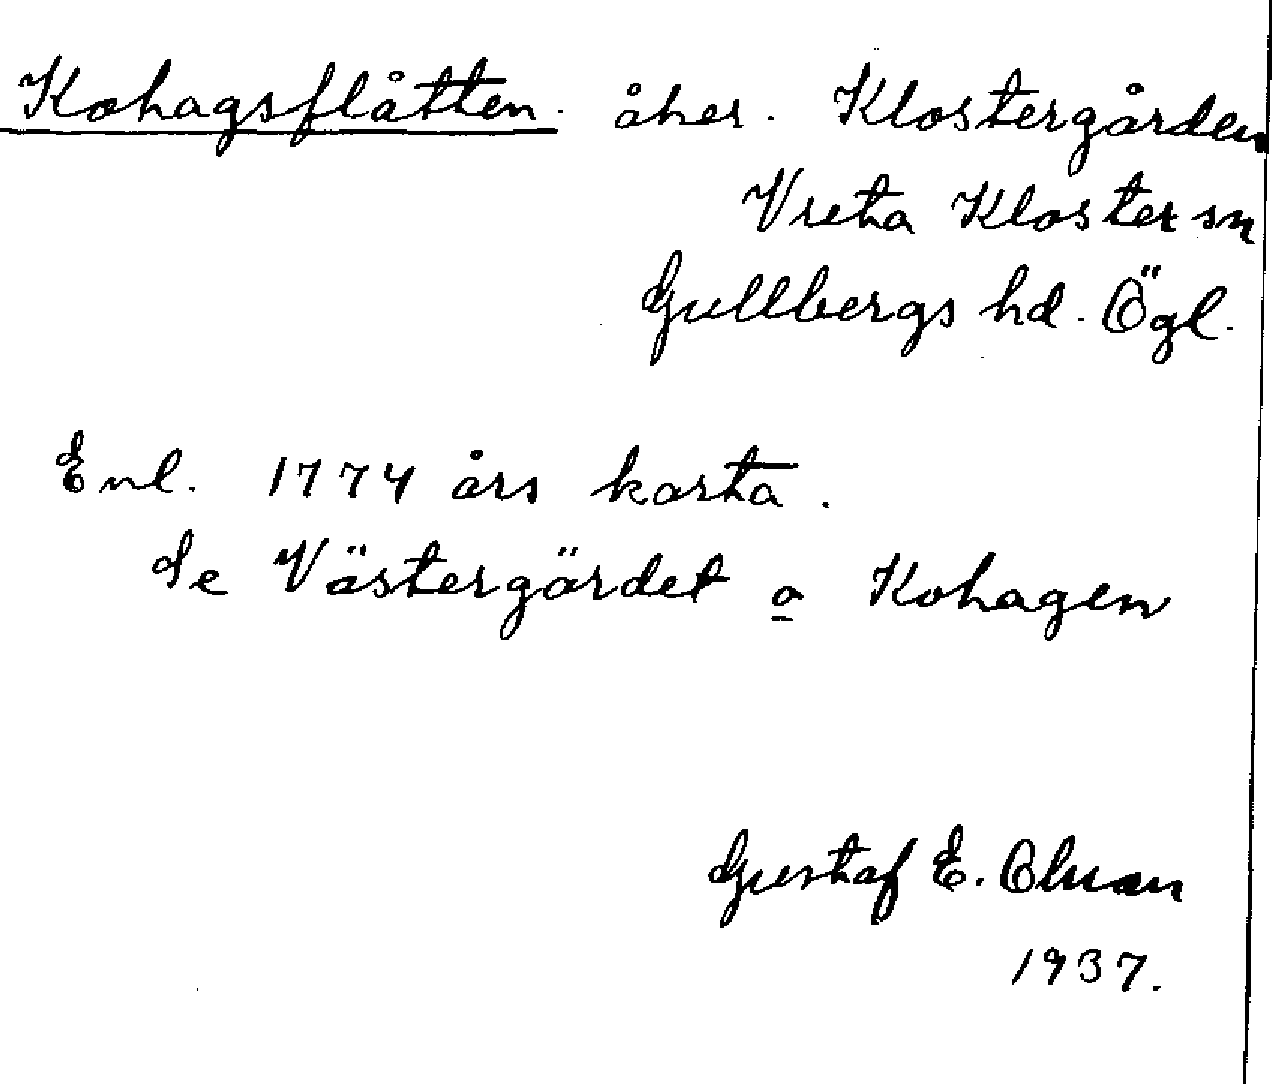 Kohagsflåtten. åker. Klostergården
Vreta Kloster sn
Gullbergs hd. Ögl.
Enl. 1774 års karta.
Se Västergärdet o Kohagen
Gustaf E. Olsson
1937.